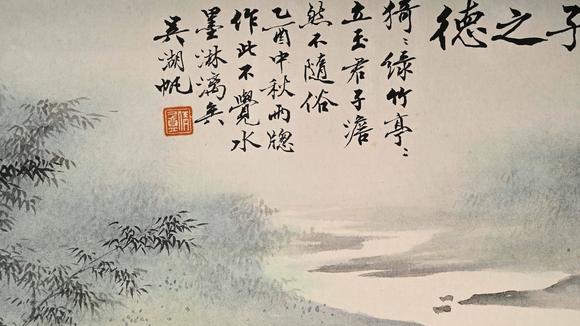 子之德
猗〻綠竹亭〻
立玉君子澹
然不隨俗
乙酉中秋雨牕
作此不覺水
墨淋漓矣
吳湖帆